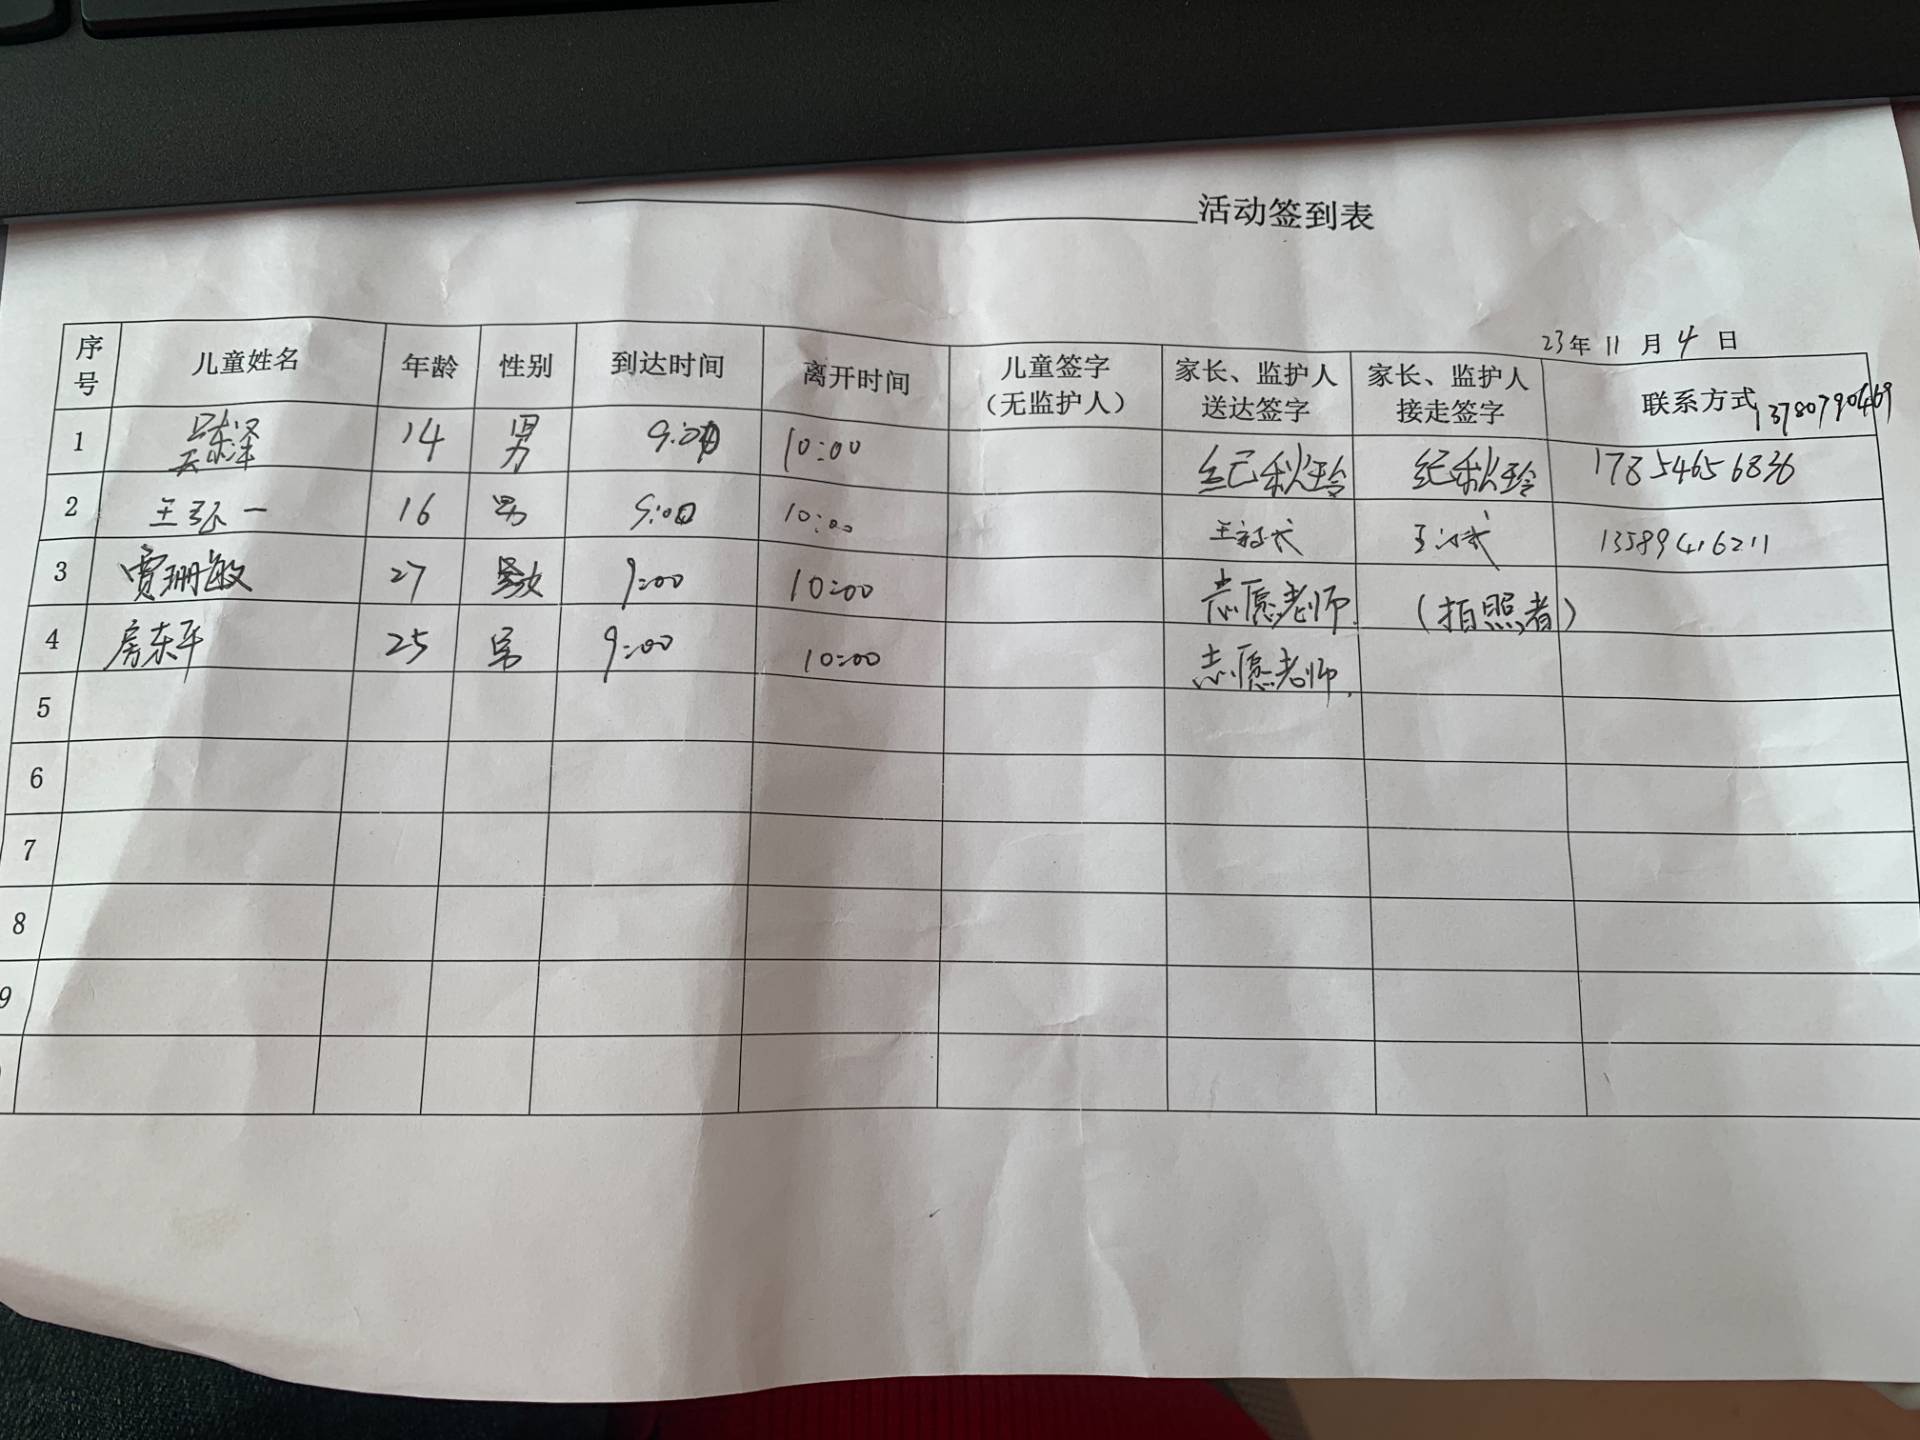 活动签到表
23年 11 月 4 日
序号 儿童姓名 年龄 性别 到达时间 离开时间 儿童签字（无监护人） 家长、监护人送达签字 家长、监护人接走签字 联系方式 13780790469
1 14 男 9:00 10:00 纪秋玲 纪秋玲 17854656836
2 王 一 16 男 9:00 10:00 13589416211
3 贾珊敏 27 女 9:00 10:00 志愿老师. （拍照者）
4 房东平 25 男 9:00 10:00 志愿老师.
5
6
7
8
9